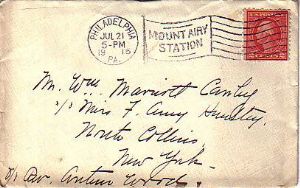 PHILADELPHIA
JUL 21
5-PM
19 15
PA.
MOUNT AIRY
STATION
Mr. Wm. Marriott Canby
c/o Miss F. Amy Huntley
North Collins
New York